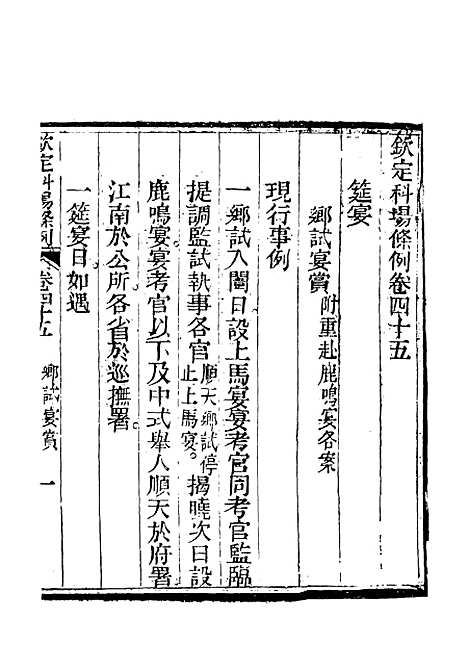 欽定科場條例卷四十五
筵宴
鄉試宴賞附重赴鹿鳴宴各案
現行事例
一鄉試入闈日設上馬宴宴考官同考官監臨
提調監試執事各官順天鄉試停止上馬宴。揭曉次日設
鹿鳴宴宴考官以下及中式舉人順天於府署
江南於公所各省於巡撫署。
一筵宴日如遇
欽定科場條例 卷四十五 鄉試宴賞 一